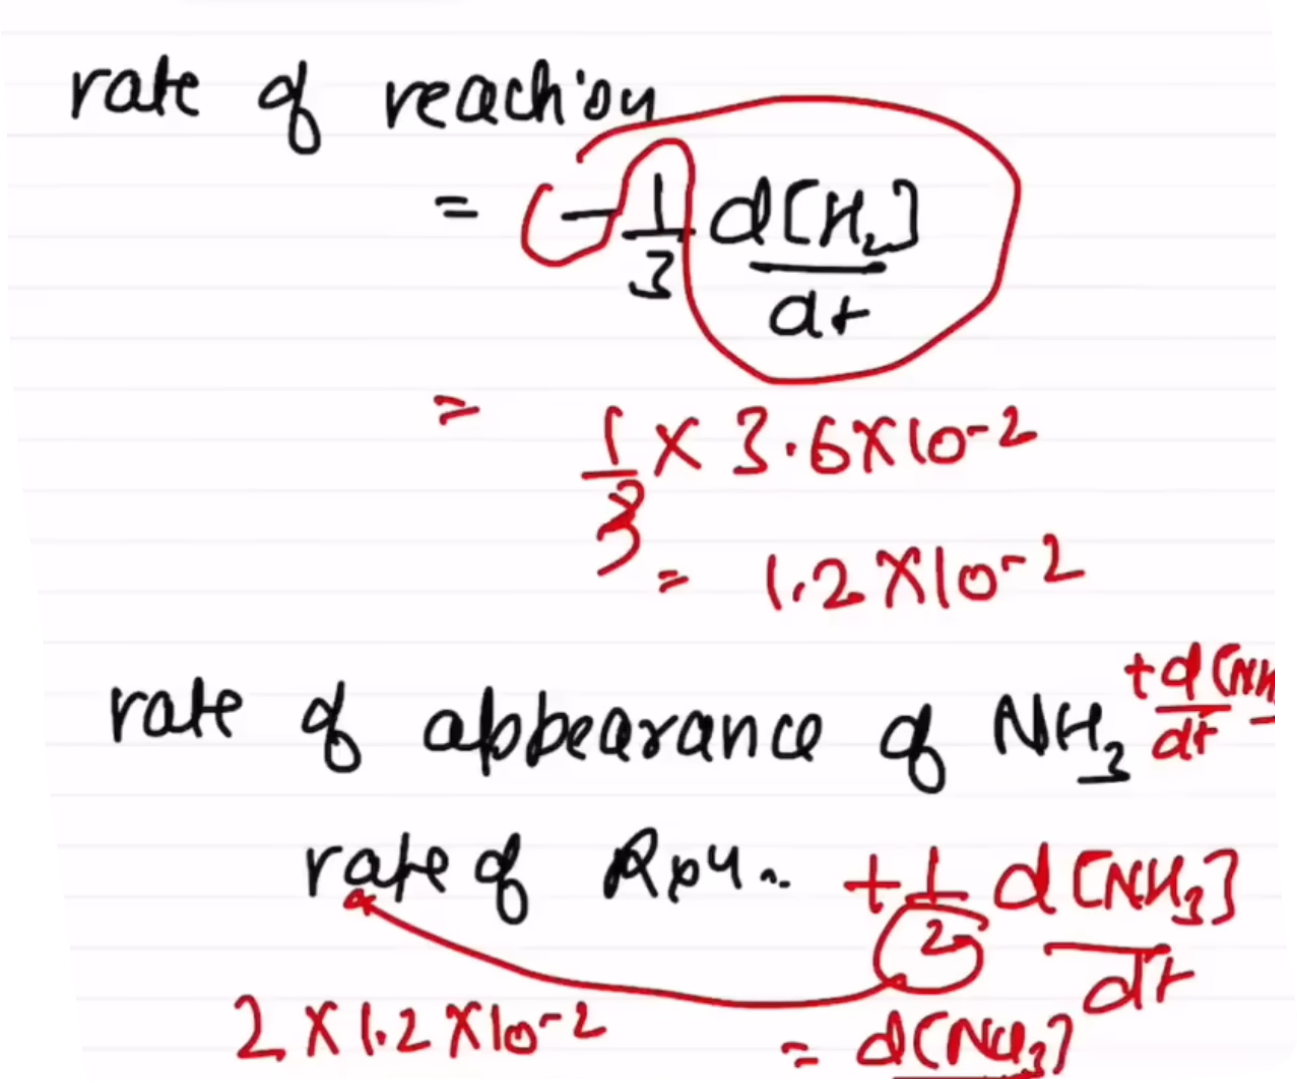 rate of reaction
= - 1/3 d[H2]/dt
= 1/3 × 3.6×10-2
= 1.2×10-2
rate of appearance of NH3 +d[NH
dt
rate of Rxn. + 1/2 d[NH3]/dt
2×1.2×10-2 = d[NH3]